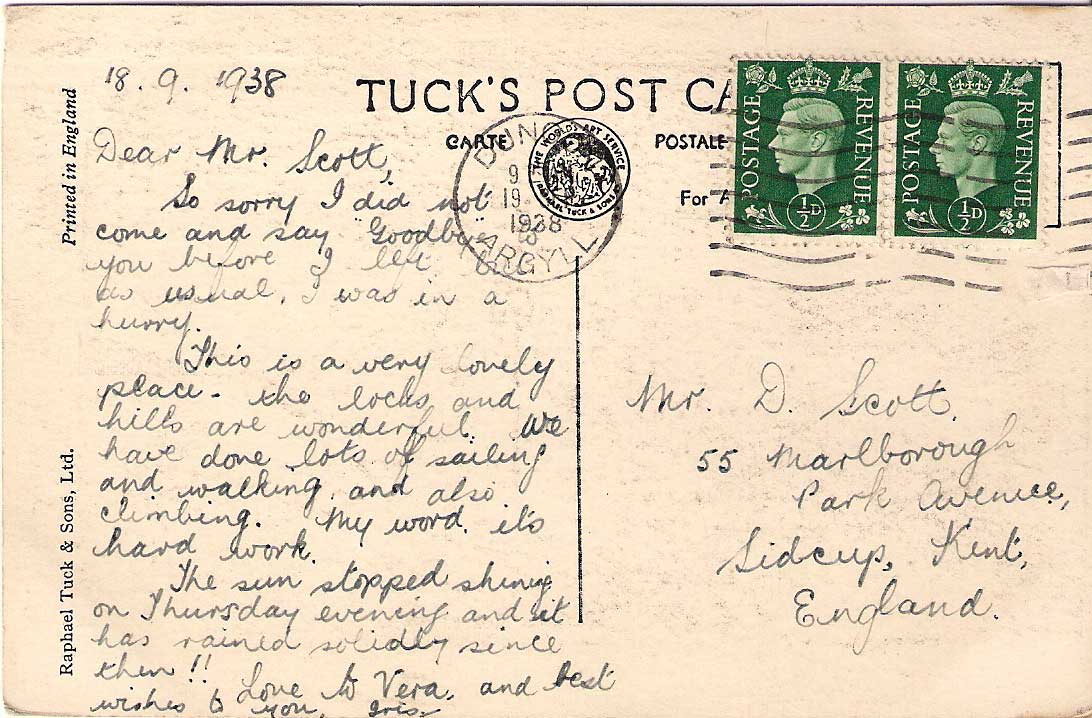 18. 9. 1938
TUCK'S POST CA
CARTE
POSTALE
For A
Printed in England
Raphael Tuck & Sons, Ltd.
DUNO
9
19
1938
ARGYLL
THE WORLD'S ART SERVICE
RAPHAEL TUCK & SONS LTD
POSTAGE REVENUE
½D
POSTAGE REVENUE
½D
Dear Mr. Scott,
So sorry I did not
come and say "Goodbye"
you before I left but
as usual, I was in a
hurry.
This is a very lovely
place - the lochs and
hills are wonderful. We
have done lots of sailing
and walking, and also
climbing. My word, it's
hard work.
The sun stopped shining
on Thursday evening and it
has rained solidly since
then!!
Love to Vera, and best
wishes to you, Iris.
Mr. D. Scott,
55 Marlborough
Park Avenue,
Sidcup, Kent,
England.